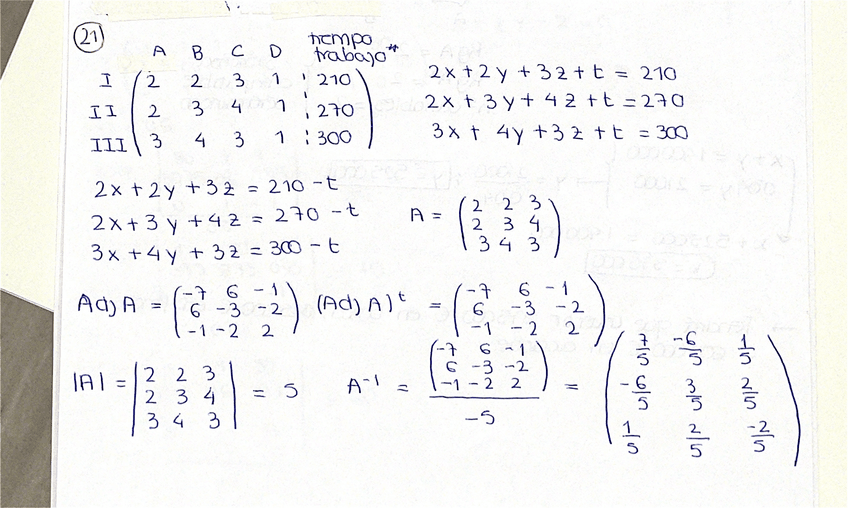 21
A B C D tiempo trabajo*
I 2 2 3 1 210
II 2 3 4 1 270
III 3 4 3 1 300
2x+2y+3z+t = 210
2x+3y+4z+t = 270
3x+4y+3z+t = 300
2x+2y+3z = 210-t
2x+3y+4z = 270-t
3x+4y+3z = 300-t
A = ( 2 2 3
2 3 4
3 4 3 )
Adj A = ( -7 6 -1
6 -3 -2
-1 -2 2 )
(Adj A)^t = ( -7 6 -1
6 -3 -2
-1 -2 2 )
|A| = | 2 2 3
2 3 4
3 4 3 | = 5
A^-1 = ( -7 6 -1
6 -3 -2
-1 -2 2 )
-5
= ( 7/5 -6/5 1/5
-6/5 3/5 2/5
1/5 2/5 -2/5 )